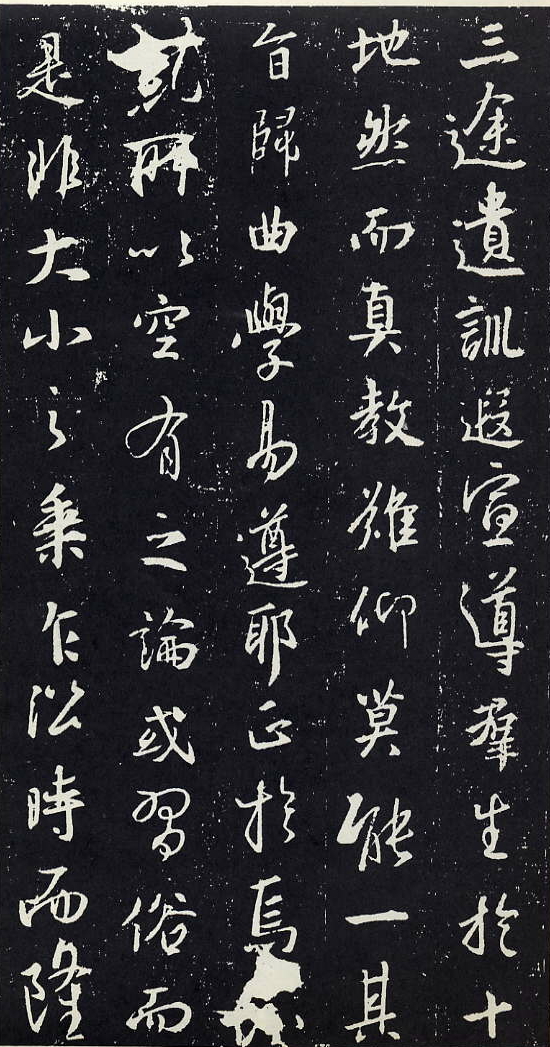 三途遺訓遐宣導羣生於十
地然而真教難仰莫能一其
旨歸曲學易遵耶正於焉
糾所以空有之論或習俗而
是非大小之乘乍沿時而隆